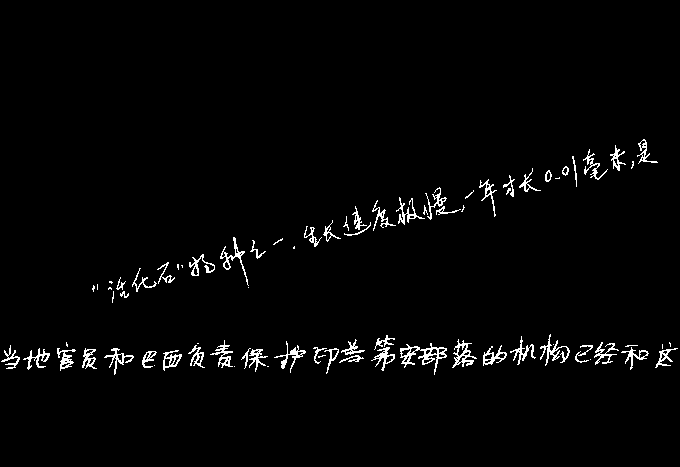 “活化石”物种之一.生长速度极慢,一年才长0.01毫米,是
当地官员和巴西负责保护印第安部落的机构已经和这